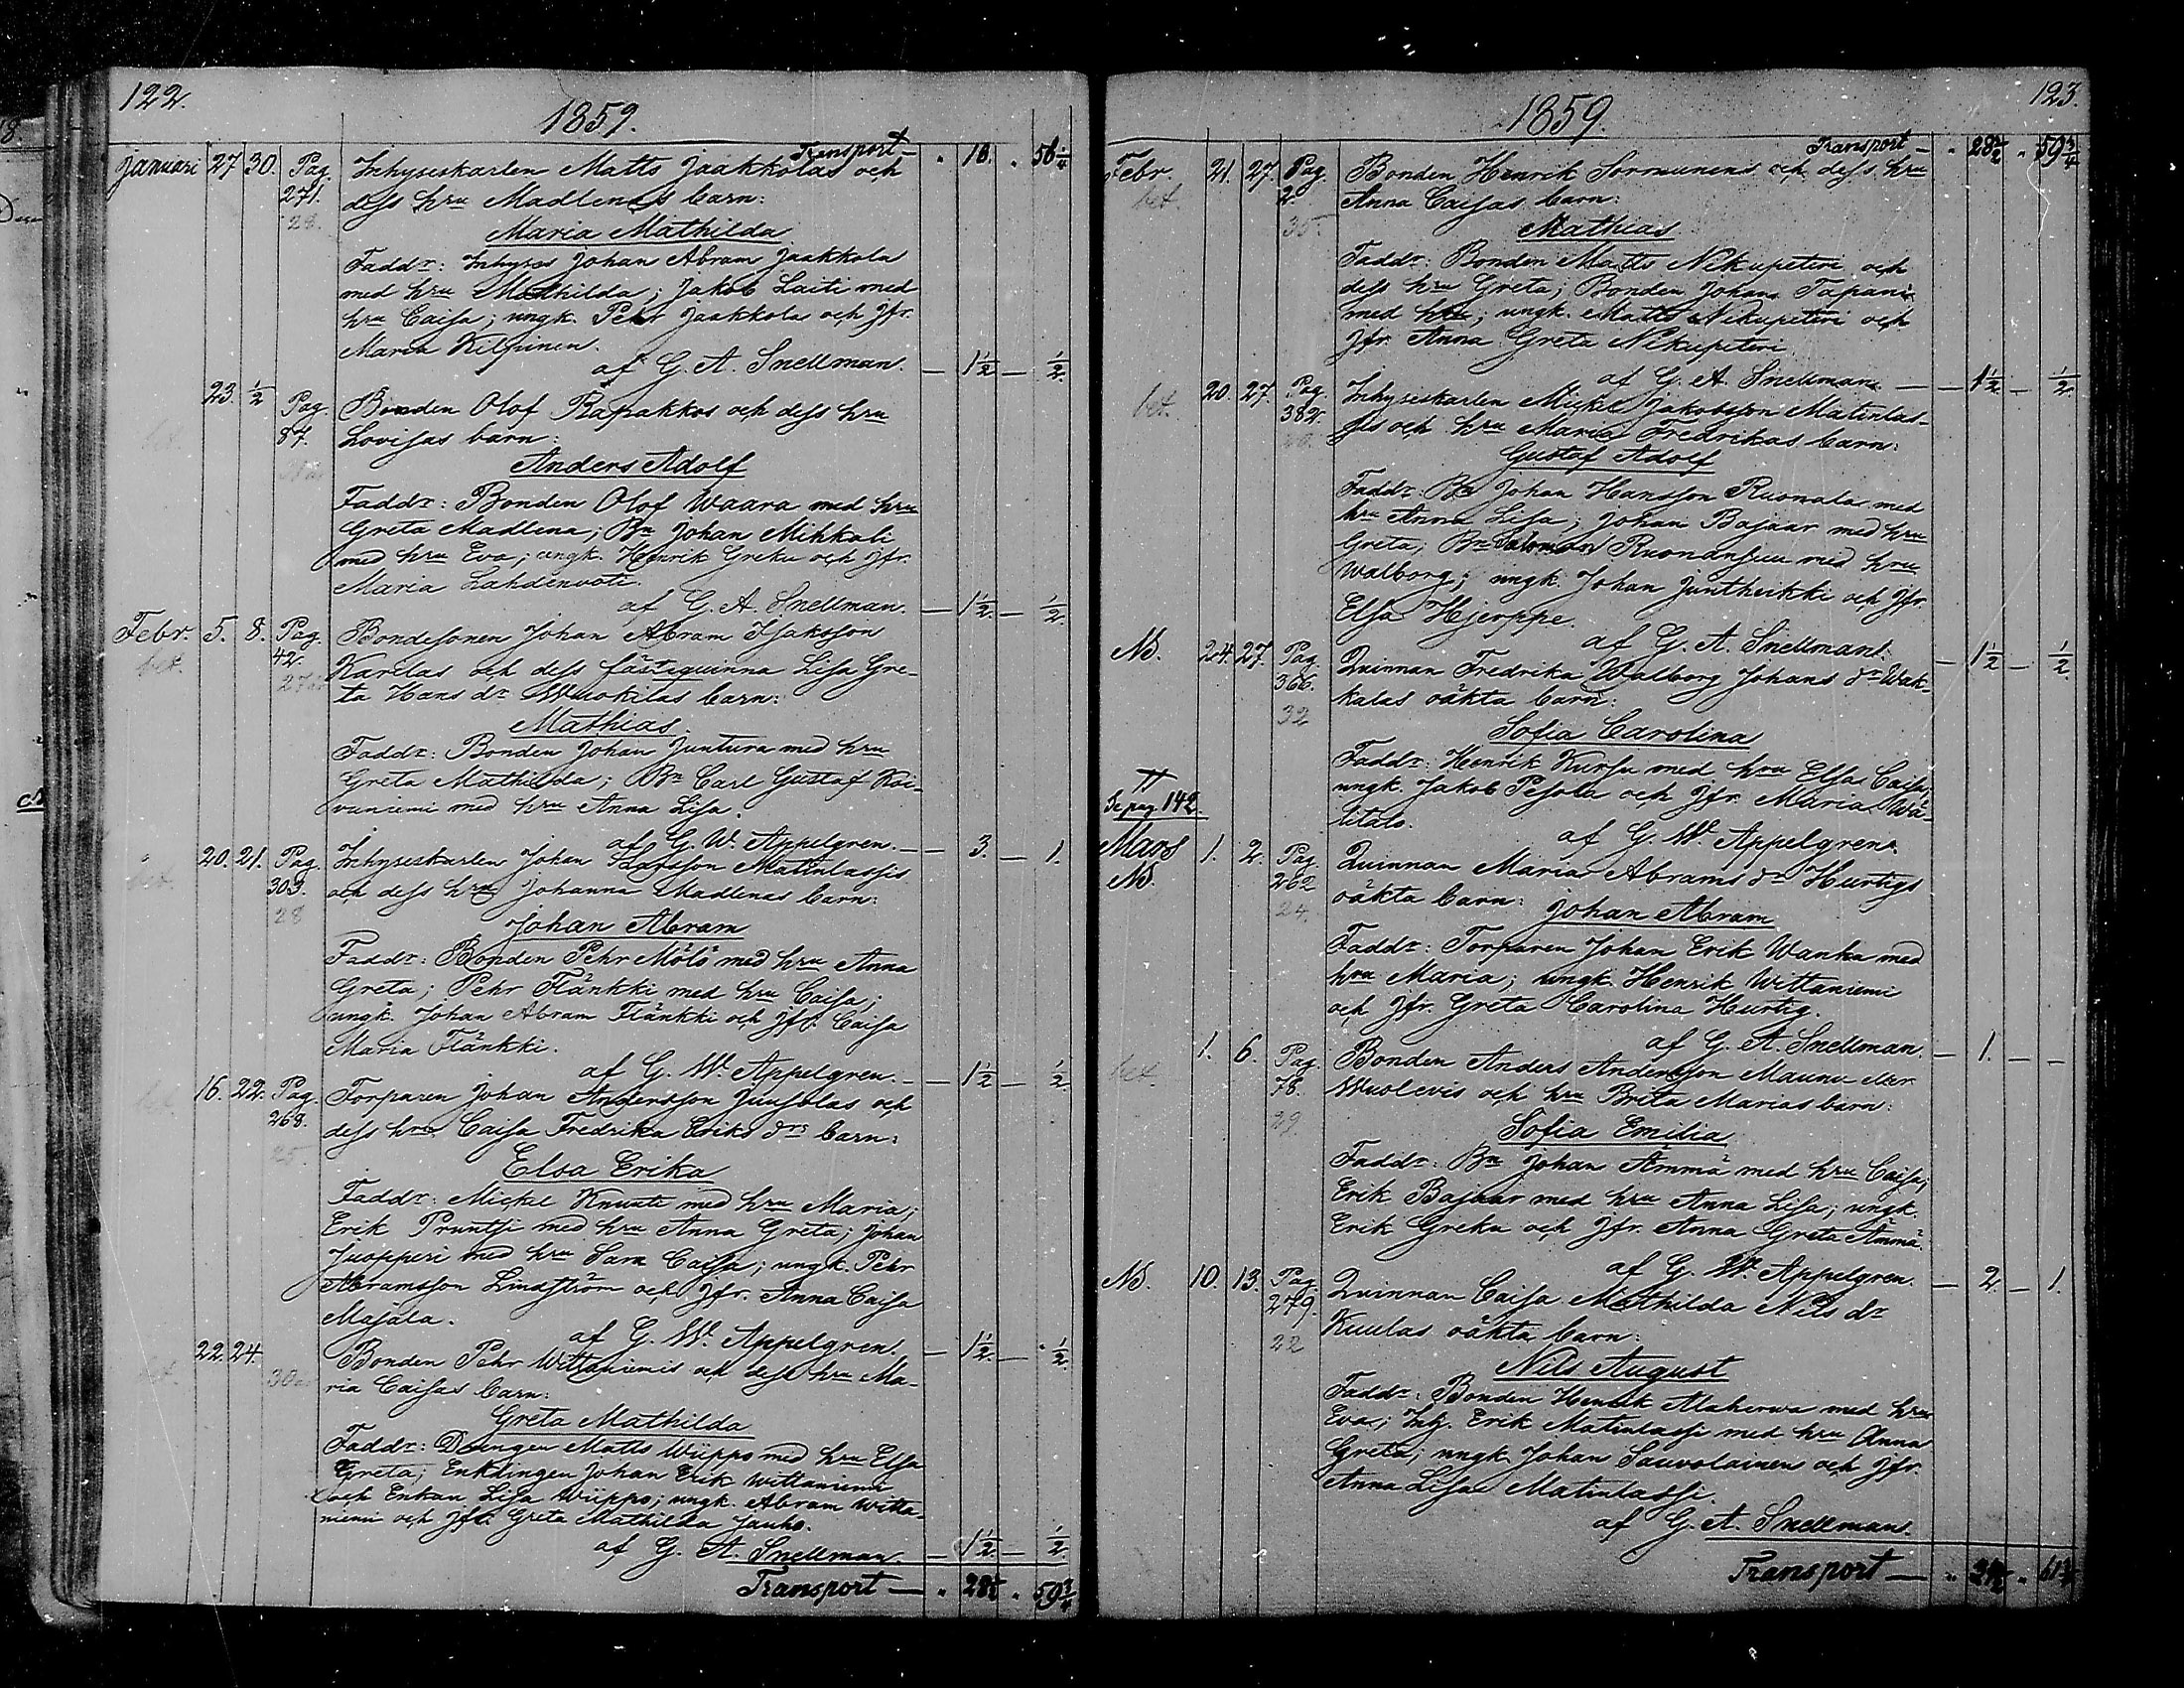 122.
1859.
Transport — " 16. " 56 1/4
Januari 27 30. Pag. 271. 28. Inhyseskarlen Matts Jaakkolas och
dess hru Madlenas barn:
Maria Mathilda
Faddr: Inhyses Johan Abram Jaakkola
med hru Mathilda; Jakob Laiti med
hru Caisa; ungk. Pehr Jaakkola och Jfr.
Maria Kilpinen.
af G. A. Snellman. — 1 1/2 — 1/2.
bet. 23. 1/2 Pag. 87. Bonden Olof Rapakkos och dess hru
Lovisas barn:
Anders Adolf
Faddr: Bonden Olof Waara med hru
Greta Madlena; Bn Johan Mikkali
med hru Eva; ungk. Henrik Greku och Jfr.
Maria Lahdenvoti.
af G. A. Snellman. — 1 1/2. — 1/2.
Febr. bet. 5. 8. Pag. 42. Bondesonen Johan Abram Isaksson
Karilas och dess fästequinna Lisa Gre-
ta Hans dr Wuokilas barn:
Mathias.
Faddr: Bonden Johan Juntura med hru
Greta Mathilda; Bn Carl Gustaf Koi-
vuniemi med hru Anna Lisa.
af G. W. Appelgren. — 3. — 1.
bet. 20. 21. Pag. 303. 28 Inhyseskarlen Johan Larsson Matinlassis
och dess hru Johanna Madlenas barn:
Johan Abram
Faddr: Bonden Pehr Mölö med hru Anna
Greta; Pehr Flänkki med hru Caisa;
ungk. Johan Abram Flänkki och Jfr. Caisa
Maria Flänkki.
af G. W. Appelgren. — 1 1/2 — 1/2.
bet. 16. 22. Pag. 268. 25. Torparen Johan Andersson Juusolas och
dess hru Caisa Fredrika Eriks drs barn:
Elsa Erika
Faddr: Mickel Knuuti med hru Maria;
Erik Pruntsi med hru Anna Greta; Johan
Juopperi med hru Sara Caisa; ungk. Pehr
Abramsson Lindström och Jfr. Anna Caisa
Majala.
af G. W. Appelgren. — 1 1/2. — 1/2.
bet. 22. 24. 30 Bonden Pehr Wittaniemis och dess hru Ma-
ria Caisas barn:
Greta Mathilda
Faddr: Drengen Matts Wiippo med hru Elsa
Greta; Enklingen Johan Erik Wittaniemi
och Enkan Lisa Wiippo; ungk. Abram Witta-
niemi och Jfr. Greta Mathilda Jauho.
af G. A. Snellman. — 1 1/2 — 1/2.
Transport — " 28 1/2 " 59 3/4
123.
1859.
Transport — " 28 1/2 " 59 3/4
Febr. bet. 21. 27. Pag. 2. 35. Bonden Henrik Sormunens och dess hru
Anna Caisas barn:
Mathias
Faddr: Bonden Matts Nikupeteri och
dess hru Greta; Bonden Johan Tapani
med hru; ungk. Matts Nikupeteri och
Jfr Anna Greta Nikupeteri.
af G. A. Snellman. — 1 1/2 — 1/2.
bet. 20. 27. Pag. 382. Inhyseskarlen Mickel Jakobsson Matinlas-
sis och hru Maria Fredrikas barn:
Gustaf Adolf
Faddr: Bn Johan Hansson Ruonala med
hru Anna Lisa; Johan Bajaar med hru
Greta; Bn Salomon Ruonansuu med hru
Walborg; ungk. Johan Juntheikki och Jfr
Elsa Hjerppe.
af G. A. Snellman. — 1 1/2 — 1/2.
NB. 24. 27. Pag. 366. 32 Quinnan Fredrika Walborg Johans dr Wak-
kalas oäkta barn:
Sofia Carolina
Faddr: Henrik Kursu med hru Elsa Caisa;
ungk. Jakob Pesola och Jfr. Maria Wä-
litalo.
Se pag. 142.
af G. W. Appelgren.
Mars NB. 1. 2. Pag. 262 24. Quinnan Maria Abrams dr Hurtigs
oäkta barn: Johan Abram
Faddr: Torparen Johan Erik Wanha med
hru Maria; ungk. Henrik Wittaniemi
och Jfr. Greta Carolina Hurtig.
af G. A. Snellman. — 1. — —
bet. 1. 6. Pag. 78. 29. Bonden Anders Andersson Maunu eller
Wuolevis och hru Brita Marias barn:
Sofia Emilia
Faddr: Bn Johan Ämmä med hru Caisa;
Erik Bajaar med hru Anna Lisa; ungk.
Erik Greku och Jfr. Anna Greta Ämmä.
af G. W. Appelgren. — 2. — 1.
NB. 10. 13. Pag. 279. 22 Quinnan Caisa Mathilda Nils dr
Kuulas oäkta barn:
Nils August
Faddr: Bonden Henrik Alaherva med hru
Eva; Inh. Erik Matinlassi med hru Anna
Greta; ungk. Johan Sauvolainen och Jfr.
Anna Lisa Matinlassi.
af G. A. Snellman.
Transport — " "